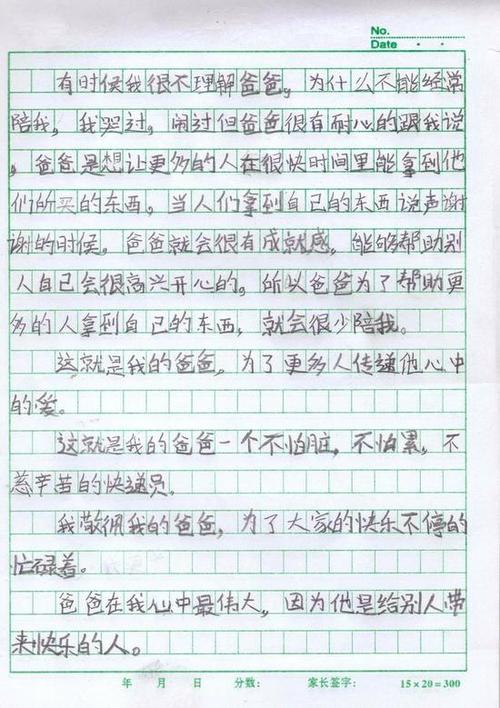 No.
Date · ·
有时侯我很不理解爸爸，为什么不能经常
陪我，我哭过，闹过但爸爸很有耐心的跟我说
，爸爸是想让更多的人在很快时间里能拿到他
们所买的东西，当人们拿到自己的东西说声谢
谢的时候。爸爸就会很有成就感，能够帮助别
人自己会很高兴开心的。所以爸爸为了帮助更
多的人拿到自己的东西，就会很少陪我。
这就是我的爸爸，为了更多人传递他心中
的爱。
这就是我的爸爸一个不怕脏，不怕累，不
辛苦的快递员。
我敬佩我的爸爸，为了大家的快乐不停的
忙碌着。
爸爸在我心中最伟大，因为他是给别人带
来快乐的人。
年 月 日 分数： 家长签字： 15×20=300